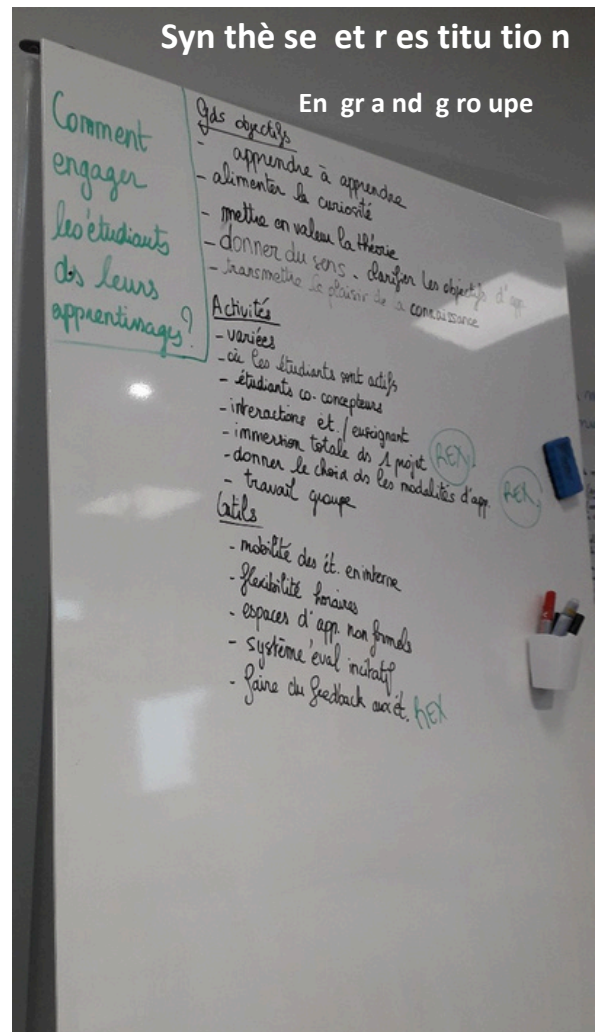 Syn thè se et r es titu tio n
En gr a nd g ro upe
Comment
engager
les étudiants
ds leurs
apprentissages?
Gds objectifs
- apprendre à apprendre
- alimenter la curiosité
- mettre en valeur la théorie
- donner du sens - clarifier les objectifs d'app.
- transmettre le plaisir de la connaissance
Activités
- variées
- où les étudiants sont actifs
- étudiants co-concepteurs
- interactions ét. / enseignant
- immersion totale ds 1 projet REX
- donner le choix ds les modalités d'app. REX
- travail groupe
Outils
- mobilité des ét. en interne
- flexibilité horaires
- espaces d'app. non formels
- système éval incitatif
- faire du feedback aux ét. REX